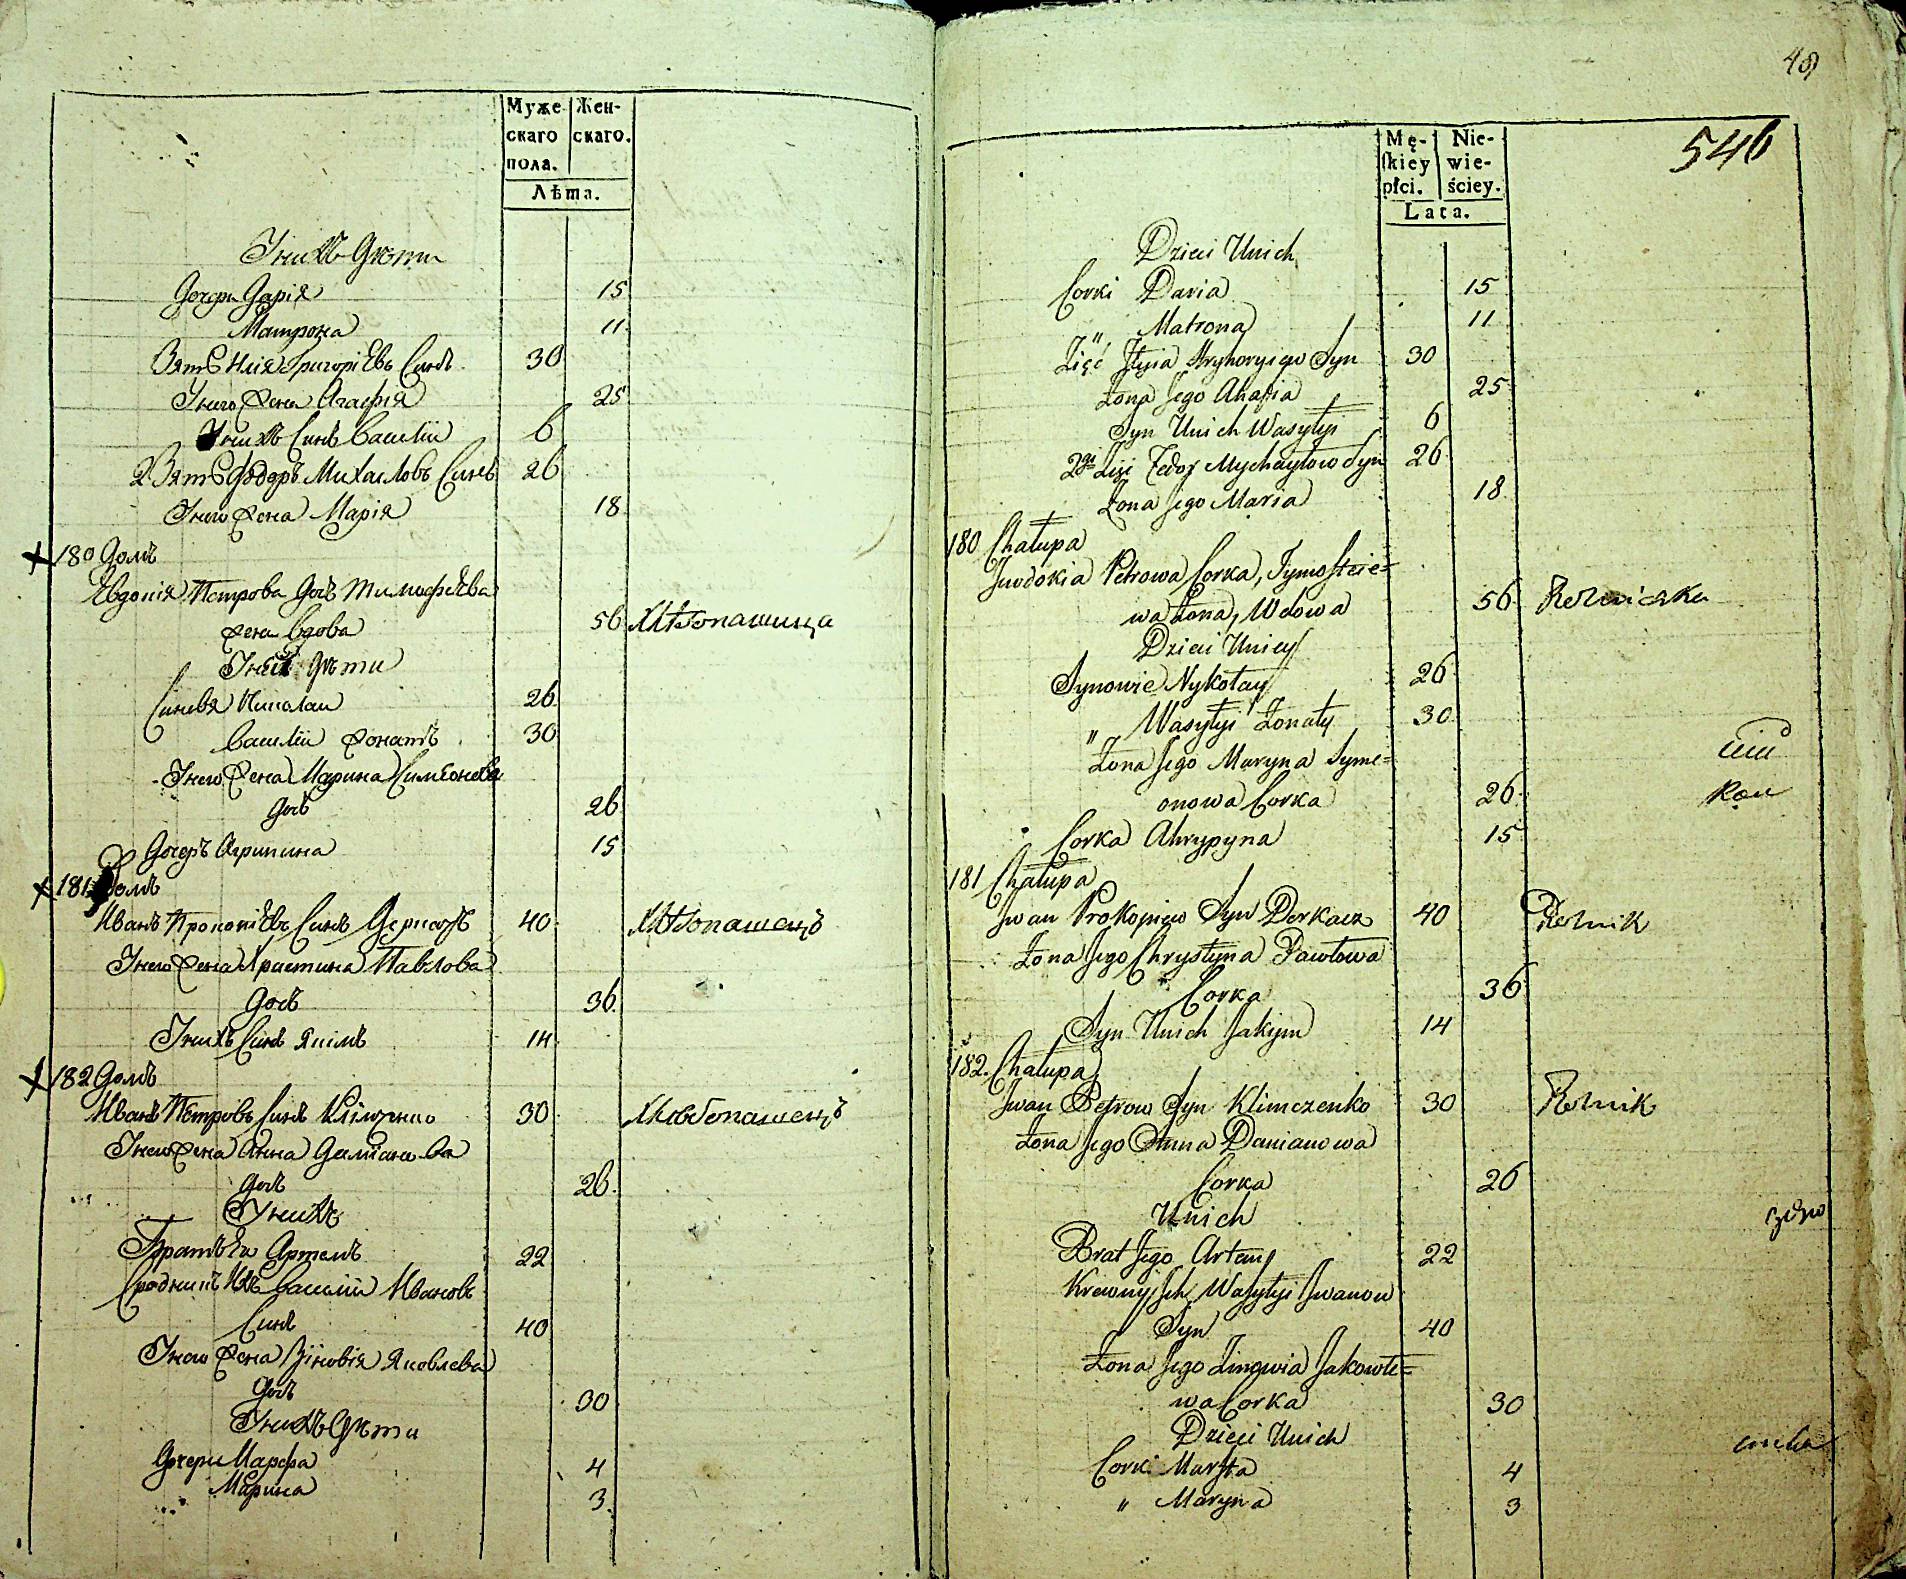 Муже-
скаго
пола.
Жен-
скаго.
Лѣта.
У нихъ дѣти
Дочери Дарія 15
Матрона 11
Зять Илія Григоріевъ Синъ 30
У него жена Агафія 25
У нихъ Синъ Василій 6
2 Зять Фѣдоръ Михаиловъ Синъ 26
У него жена Марія 18
180 Домъ
Евдокія Петрова дочь Тимофѣева
жена вдова 56 Хлѣбопашица
У ней дѣти
Синовя Николаи 26
Василій жонатъ 30
У него жена Марина Симіонова
дочь 26
Дочеръ Агрипина 15
181 Домъ
Иванъ Прокопіевъ Синъ Деркачъ 40 Хлѣбопашецъ
У него жена Христина Павлова
дочь 36
У нихъ Синъ Якимъ 14
182 Домъ
Иванъ Петровъ Синъ Клімченко 30 Хлѣбопашецъ
У него жена Анна Даміанова
дочь 26
У нихъ
Братъ Ев Артемъ 22
Сродникъ Ихъ Василій Ивановъ
Синъ 40
У него жена Зіновія Яковлева
дочь 30
У нихъ дѣти
Дочери Марфа 4
Марина 3
48
546
Mę-
ſkiey
płci.
Nie-
wie-
ściey.
Lata.
Dzieci Unich
Corki Daria 15
" Matrona 11
Zięć Jlyia Hryhoryiew Syn 30
Żona Jego Ahafia 25
Syn Unich Wasylyi 6
2gi Zięć Fedor Mychayłow Syn 26
Żona Jego Maria 18
180 Chałupa
Jwdokia Petrowa Corka, Tymofteie=
wa Żona, Wdowa 56 Rolniczka
Dzieci Uniey
Synowie Nykołay 26
" Wasylyi Żonaty 30
Żona Jego Maryna Syme=
onowa Corka 26
Corka Ahrypyna 15
181 Chałupa
Jwan Prokopiew Syn Derkacz 40 Rolnik
Żona Jego Chrystyna Pawłowa
Corka 36
Syn Unich Jakym 14
182. Chałupa
Jwan Petrow Syn Klimczenko 30 Rolnik
Żona Jego Anna Damianowa
Corka 26
Unich
Brat Jego Artem 22
Krewny Jch Wasylyi Jwanow
Syn 40
Żona Jego Zinowia Jakowle=
wa Corka 30
Dzieci Unich
Corki Marfta 4
" Maryna 3